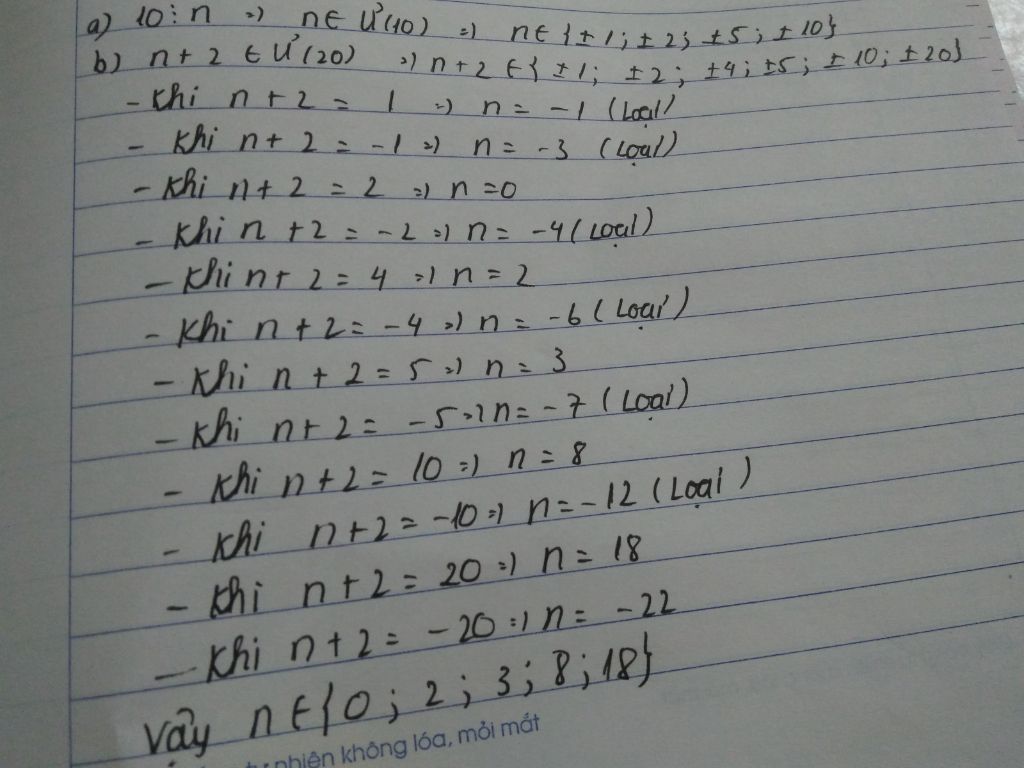 a) 10 ⋮ n => n ∈ Ư(10) => n ∈ { ±1 ; ±2 ; ±5 ; ±10}
b) n + 2 ∈ Ư(20) => n + 2 ∈ { ±1 ; ±2 ; ±4 ; ±5 ; ±10 ; ±20}
- Khi n + 2 = 1 => n = -1 (Loại)
- Khi n + 2 = -1 => n = -3 (Loại)
- Khi n + 2 = 2 => n = 0
- Khi n + 2 = -2 => n = -4 (Loại)
- Khi n + 2 = 4 => n = 2
- Khi n + 2 = -4 => n = -6 (Loại)
- Khi n + 2 = 5 => n = 3
- Khi n + 2 = -5 => n = -7 (Loại)
- Khi n + 2 = 10 => n = 8
- Khi n + 2 = -10 => n = -12 (Loại)
- Khi n + 2 = 20 => n = 18
- Khi n + 2 = -20 => n = -22
Vậy n ∈ {0 ; 2 ; 3 ; 8 ; 18}
nhiên không lóa, mỏi mắt